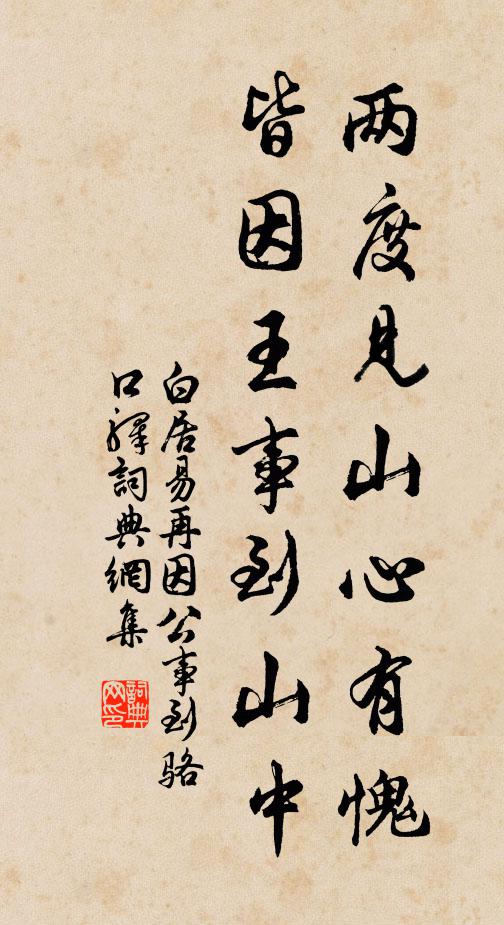 两度见山心有愧
皆因王事到山中
白居易再因公事到骆
口驿詞典網集
詞典
网印